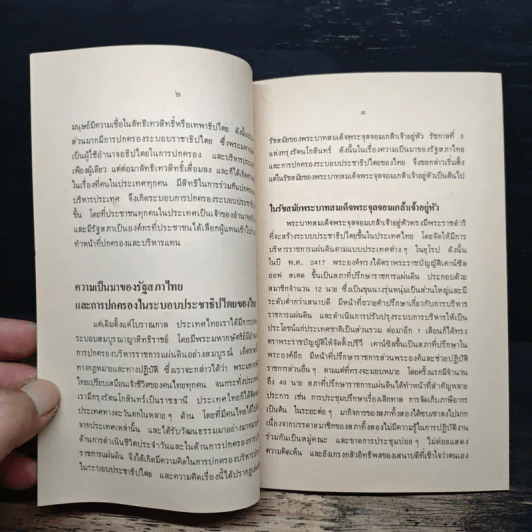 ๒
มนุษย์มีความเชื่อในลัทธิเทวสิทธิ์หรือเทพาธิปไตย
ส่วนมากมีการปกครองระบอบราชาธิปไตย ซึ่งพระมหา
เป็นผู้ใช้อำนาจอธิปไตยในการปกครอง และบริหารประเทศ
เพียงผู้เดียว แต่ต่อมาลัทธิเทวสิทธิ์เสื่อมลง และก็ได้เกิด
ในเรื่องที่คนในประเทศทุกคน มีสิทธิในการร่วมกันปกครอง
บริหารประเทศ จึงเกิดระบอบการปกครองระบอบประชาธิปไตย
ขึ้น โดยที่ประชาชนทุกคนในประเทศเป็นเจ้าของอำนาจ
และมีรัฐสภาเป็นองค์กรที่ประชาชนได้เลือกผู้แทนเข้าไป
ทำหน้าที่ปกครองและบริหารแทน
ความเป็นมาของรัฐสภาไทย
และการปกครองในระบอบประชาธิปไตยของไทย
แต่เดิมตั้งแต่โบราณกาล ประเทศไทยเราได้มีการปกครอง
ระบอบสมบูรณาญาสิทธิราชย์ โดยมีพระมหากษัตริย์มีอำนาจ
การปกครองบริหารราชการแผ่นดินอย่างสมบูรณ์
ทางกฎหมายและทางปฏิบัติ ซึ่งเราจะกล่าวได้ว่า
ไทยเปรียบเสมือนเจ้าชีวิตของคนไทยทุกคน จนกระทั่ง
เรามีกรุงรัตนโกสินทร์เป็นราชธานี ประเทศไทยก็ได้ติดต่อ
ประเทศทางตะวันตกในหลาย ๆ ด้าน โดยที่มีคนไทยได้ไป
จากประเทศเหล่านั้น และได้รับวัฒนธรรมมาอย่างมากมาย
ด้านการดำเนินชีวิตประจำวันและในด้านการปกครอง
ราชการแผ่นดิน จึงได้เกิดมีความคิดในการปกครองบริหาร
ในระบอบประชาธิปไตย และความคิดเรื่องนี้ได้ปรากฏ
๓
รัชสมัยของพระบาทสมเด็จพระจุลจอมเกล้าเจ้าอยู่หัว รัชกาลที่ 5
แห่งกรุงรัตนโกสินทร์ ดังนั้นในเรื่องความเป็นมาของรัฐสภาไทย
และการปกครองระบอบประชาธิปไตยของไทย จึงขอกล่าวเริ่มตั้ง
แต่ในรัชสมัยพระบาทสมเด็จพระจุลจอมเกล้าเจ้าอยู่หัวเป็นต้นไป
ในรัชสมัยพระบาทสมเด็จพระจุลจอมเกล้าเจ้าอยู่หัว
พระบาทสมเด็จพระจุลจอมเกล้าเจ้าอยู่หัวทรงมีพระราชดำริ
ที่จะสร้างระบบประชาธิปไตยขึ้นในประเทศไทย โดยจัดให้มีการ
บริหารราชการแผ่นดินตามแบบประเทศต่าง ๆ ในยุโรป ดังนั้น
ในปี พ.ศ. 2417 พระองค์ทรงได้ตราพระราชบัญญัติเคาน์ซิล
ออฟ สเตด ขึ้นเป็นสภาที่ปรึกษาราชการแผ่นดิน ประกอบด้วย
สมาชิกจำนวน 12 นาย ซึ่งเป็นขุนนางรุ่นหนุ่มเป็นส่วนใหญ่และมี
ระดับต่ำกว่าเสนาบดี มีหน้าที่ถวายคำปรึกษาเกี่ยวกับการบริหาร
ราชการแผ่นดิน และดำเนินการปรับปรุงระบบการบริหารให้เป็น
ประโยชน์แก่ประเทศชาติเป็นส่วนรวม ต่อมาอีก 1 เดือนก็ได้ทรง
ตราพระราชบัญญัติให้จัดตั้งปรีวี เคาน์ซิลขึ้นเป็นสภาที่ปรึกษาใน
พระองค์อีก มีหน้าที่ปรึกษาราชการส่วนพระองค์และช่วยปฏิบัติ
ราชการส่วนอื่น ๆ ตามแต่ที่ทรงจะมอบหมาย โดยครั้งแรกมีจำนวน
ถึง 49 นาย สภาที่ปรึกษาราชการแผ่นดินได้ทำหน้าที่สำคัญหลาย
ประการ เช่น การประชุมปรึกษาเรื่องเลิกทาส การจัดเก็บภาษีอากร
เป็นต้น ในระยะต่อ ๆ มากิจการของสภาทั้งสองได้ซบเซาลงไปมาก
เนื่องจากบรรดาสมาชิกของสภาทั้งสองไม่มีความรู้ในการปฏิบัติงาน
ร่วมกันเป็นหมู่คณะ และขาดการประชุมบ่อย ๆ ไม่ค่อยแสดง
ความคิดเห็น และยังเกรงกลัวอิทธิพลของเสนาบดีที่เข้าใจว่าตนเอง